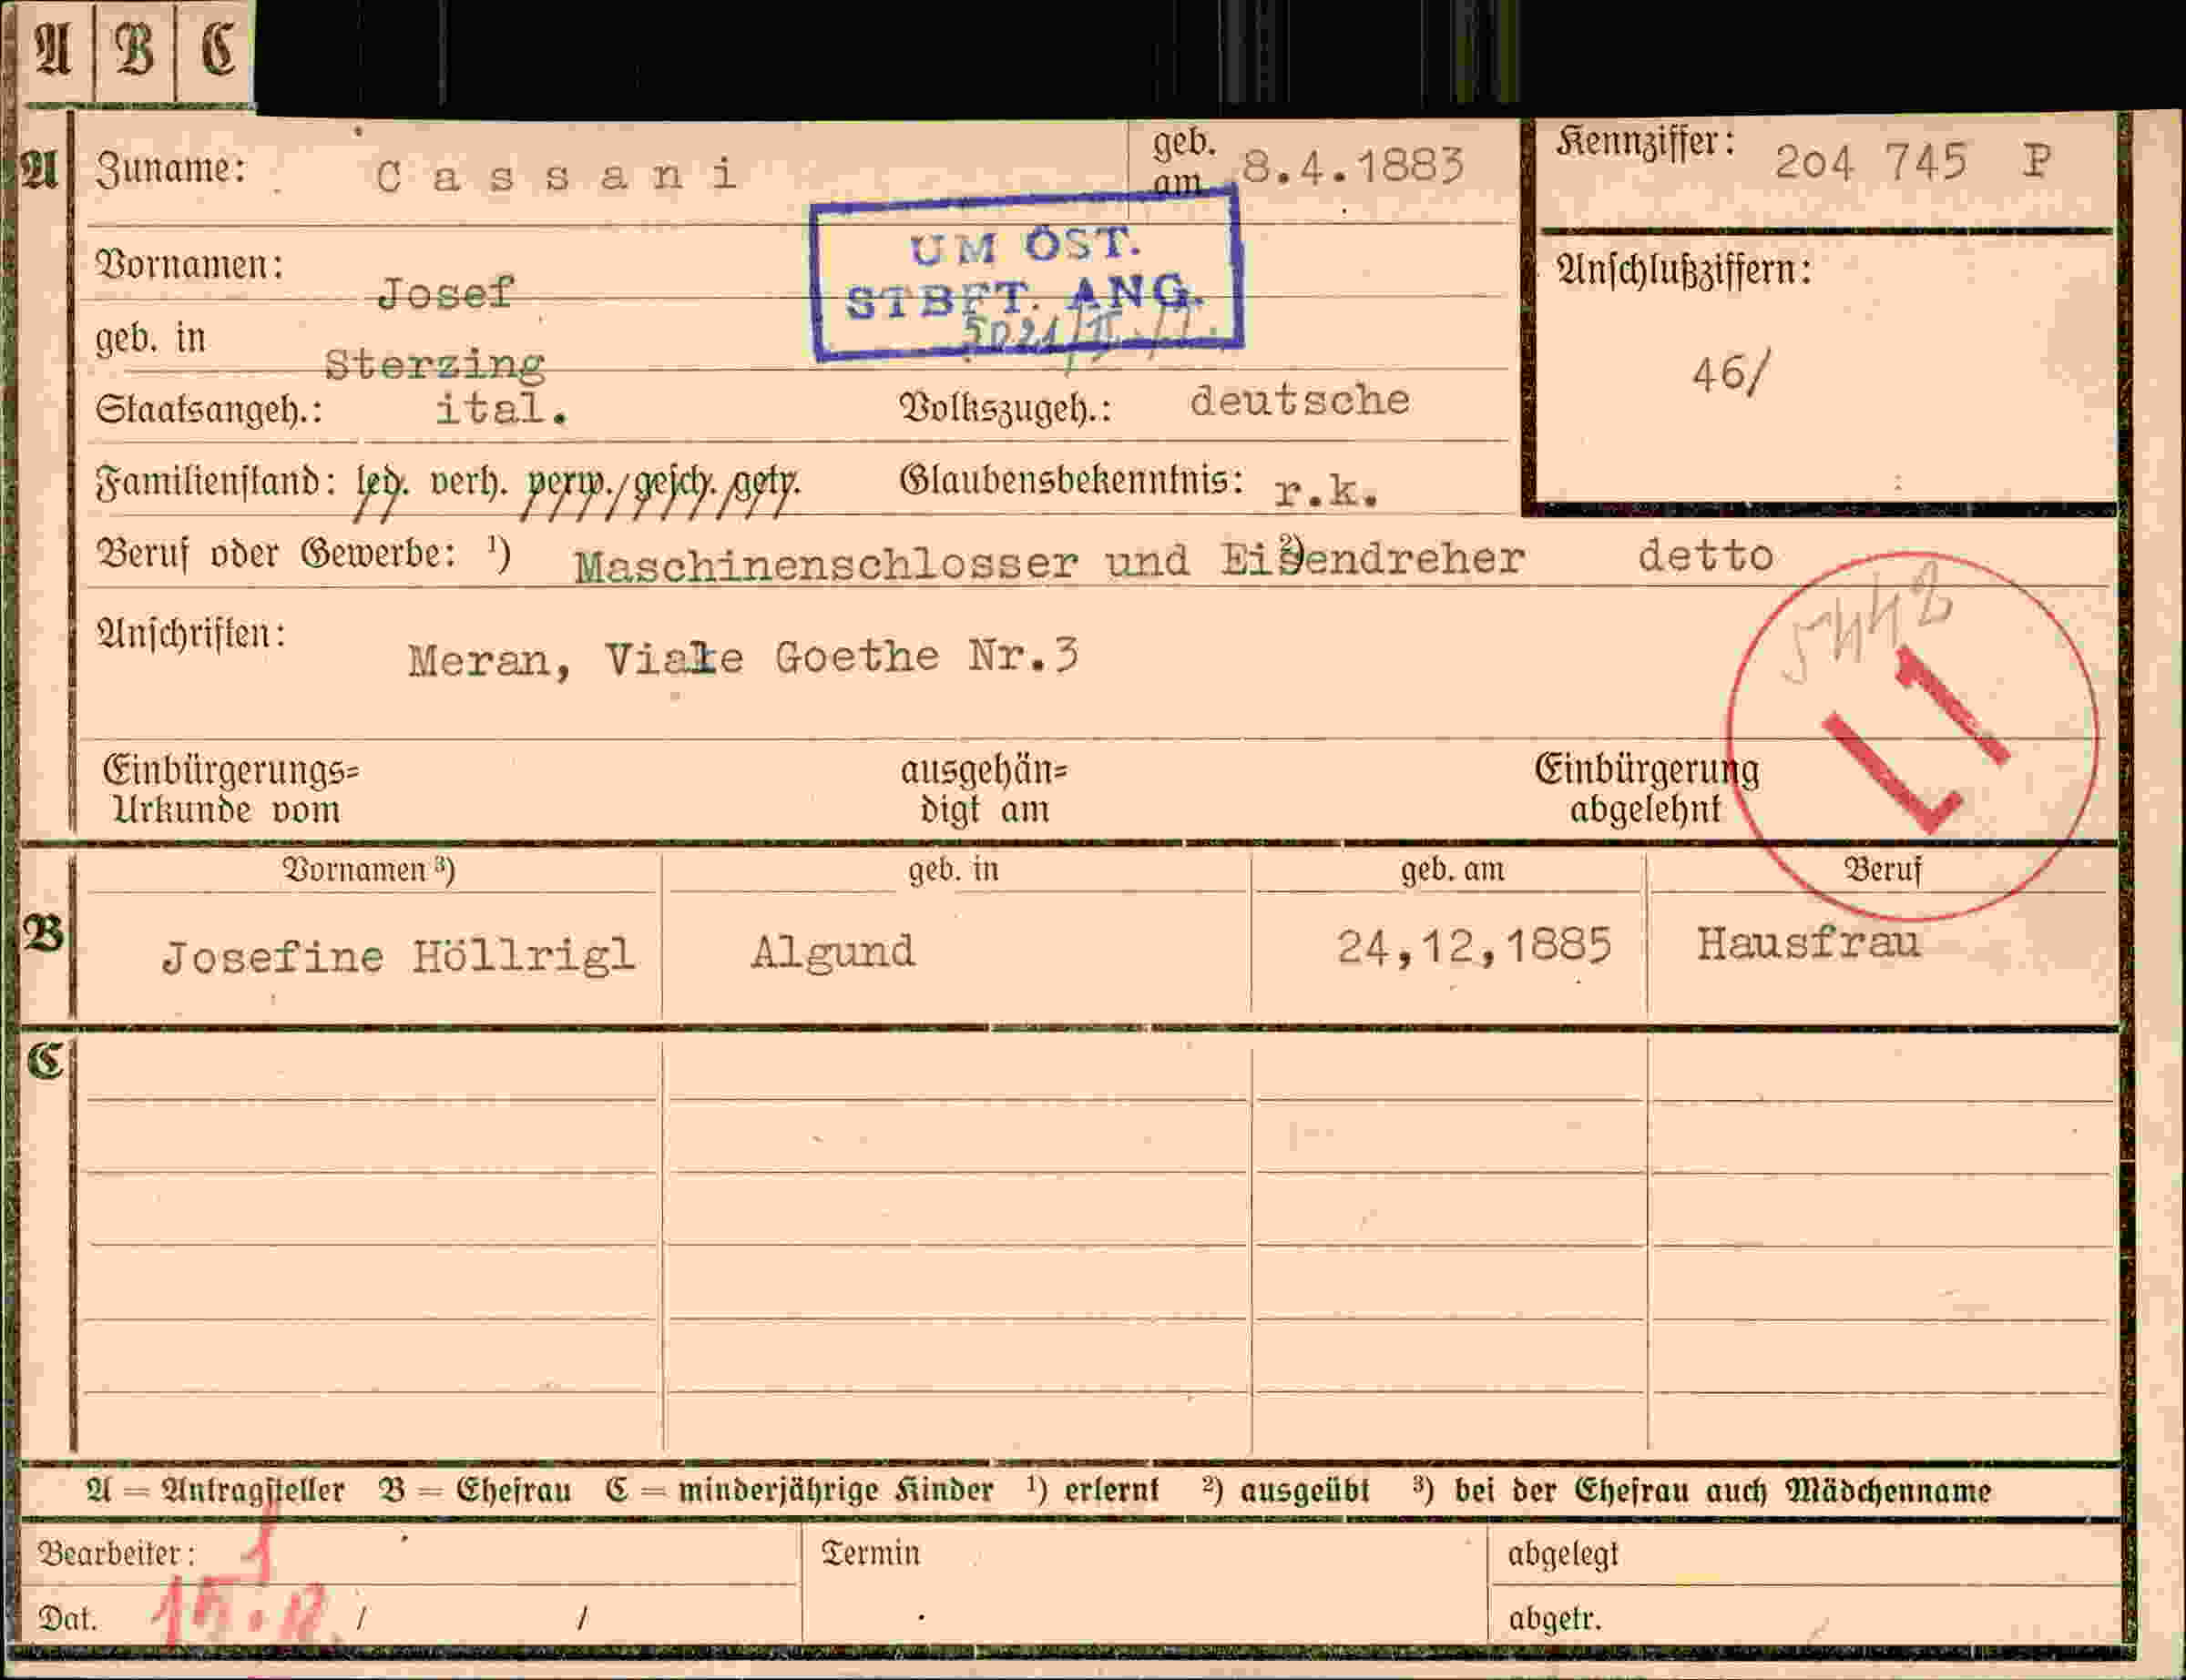 A B C
A Zuname: Cassani geb. am 8.4.1883 Kennziffer: 204 745 P
UM ÖST.
STBFT. ANG.
Vornamen: Josef Anschlußziffern:
geb. in Sterzing 46/
Staatsangeh.: ital. Volkszugeh.: deutsche
Familienstand: led. verh. verw. gesch. getr. Glaubensbekenntnis: r.k.
Beruf oder Gewerbe: ¹) Maschinenschlosser und Eisendreher ²) detto
Anschriften: Meran, Viale Goethe Nr.3
L1
Einbürgerungs= ausgehän= Einbürgerung
Urkunde vom digt am abgelehnt
Vornamen ³) geb. in geb. am Beruf
B Josefine Höllrigl Algund 24,12,1885 Hausfrau
C
A = Antragsteller B = Ehefrau C = minderjährige Kinder ¹) erlernt ²) ausgeübt ³) bei der Ehefrau auch Mädchenname
Bearbeiter: Termin abgelegt
Dat. / / abgetr.